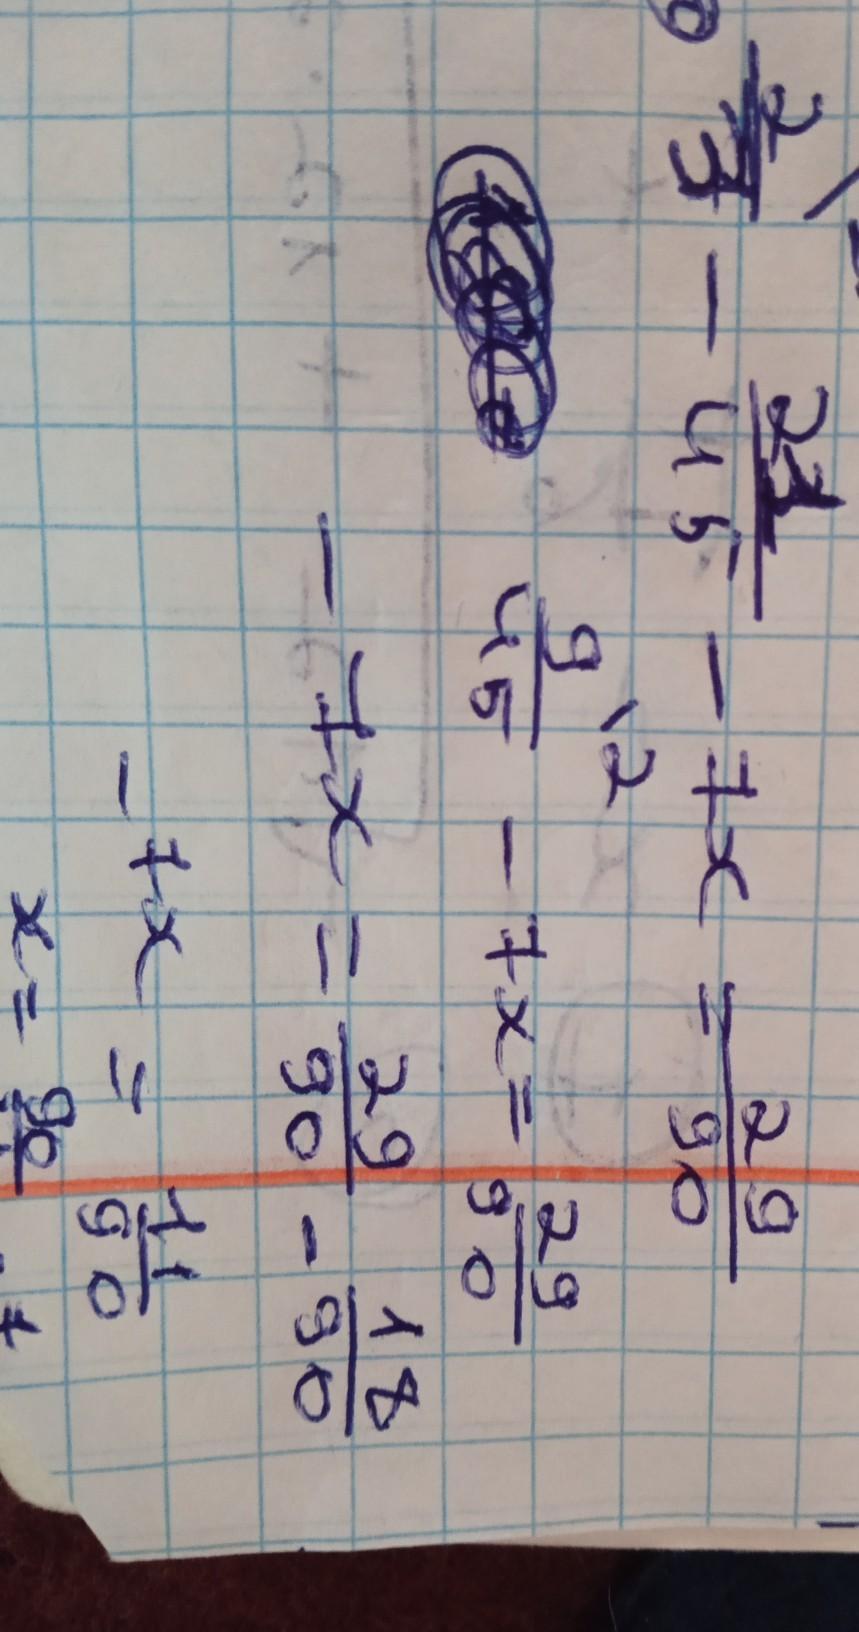 2/7 - 21/45 - 7x = 29/90
9\2/45 - 7x = 29/90
- 7x = 29/90 - 18/90
- 7x = 11/90
x =